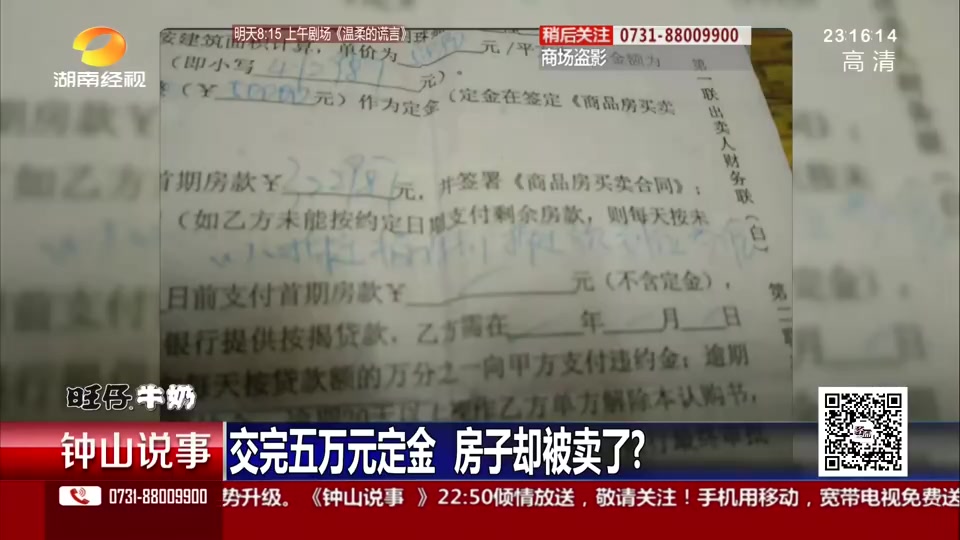 明天8:15 上午剧场《温柔的谎言》
稍后关注 0731-88009900
商场盗影
23:16:14
高清
湖南经视
按建筑面积计算，单价为 元/平 金额为
（即小写 元）。
（￥ 元）作为定金（定金在签定《商品房买卖
首期房款￥ 元，并签署《商品房买卖合同》；
（如乙方未能按约定日期支付剩余房款，则每天按未
日前支付首期房款￥ 元（不含定金），
银行提供按揭贷款，乙方需在 年 月 日
每天按贷款额的万分之一向甲方支付违约金；逾期
乙方单方解除本认购书，
第一联出卖人财务联（白）
第二联
旺仔牛奶
钟山说事
交完五万元定金 房子却被卖了?
0731-88009900
势升级。《钟山说事 》22:50倾情放送，敬请关注！手机用移动，宽带电视免费送